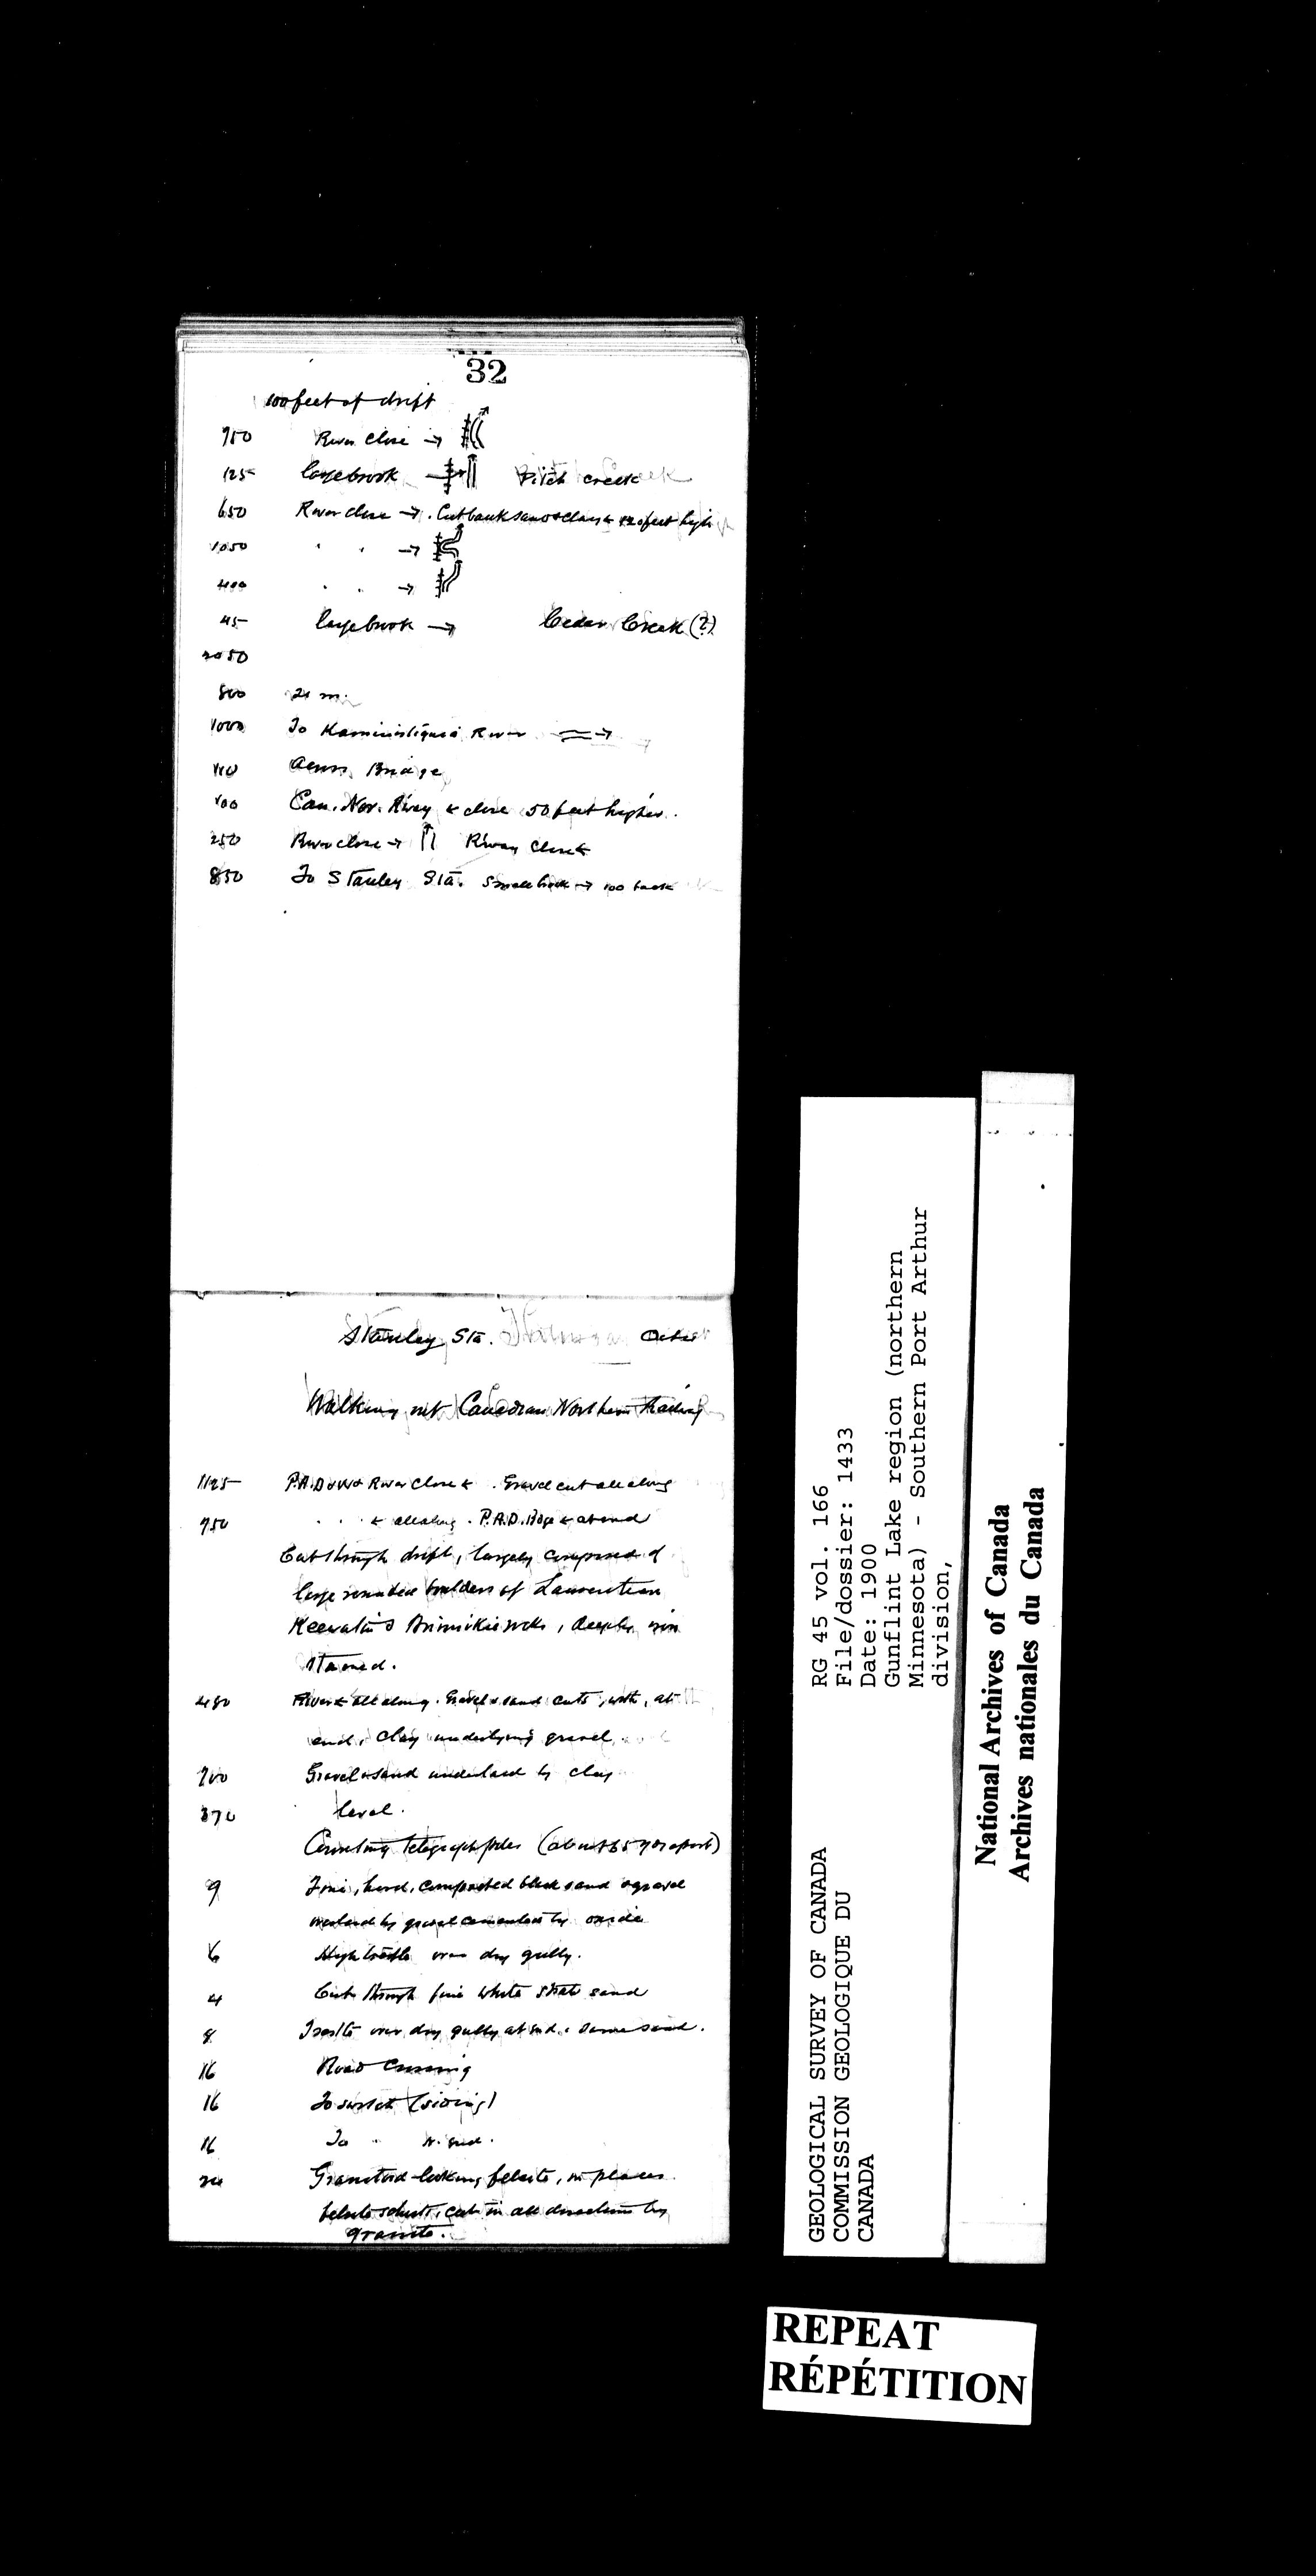 32
100 feet of drift
950 River close →
125 Large brook Pitch creek
650 River close → . Cutbank sand & clay ← 120 feet high
1050 " " →
400 " " →
45 Large brook → Cedar Creek (?)
2050
800 21 m.
1000 To Kaministiquia River →
110 Across Bridge
100 Can. Nor. R'way ← close 50 feet higher.
250 River close → R'way close ←
850 To Stanley Sta. Small brook → 100 back
Stanley Sta. Oct
Walking out Canadian Northern Railway
1125 P.A.D & W & River close ← . Gravel cut all along
950 " " ← all along . P.A.D. Bdge ← at end
Cut through drift, largely composed of
large rounded boulders of Laurentian
Keewatin & Animikie rocks, deeply iron
stained.
480 River ← all along. Gravel & sand cuts, with, at
end, clay underlying gravel
900 Gravel & sand underlaid by clay
370 level.
Counting telegraph poles (about 65 yds apart)
9 Fine, hard, compacted black sand & gravel
overlaid by gravel cemented by oxide
6 High trestle over dry gully.
4 Cut through fine white strat. sand
8 Trestle over dry gully at end. Same sand.
16 Road crossing
16 To switch (siding)
16 To " W. end.
20 Granitoid-looking felsite, in places
felsite schist, cut in all directions by
granite.
RG 45 vol. 166
File/dossier: 1433
Date: 1900
Gunflint Lake region (northern
Minnesota) - Southern Port Arthur
division,
GEOLOGICAL SURVEY OF CANADA
COMMISSION GEOLOGIQUE DU
CANADA
National Archives of Canada
Archives nationales du Canada
REPEAT
RÉPÉTITION